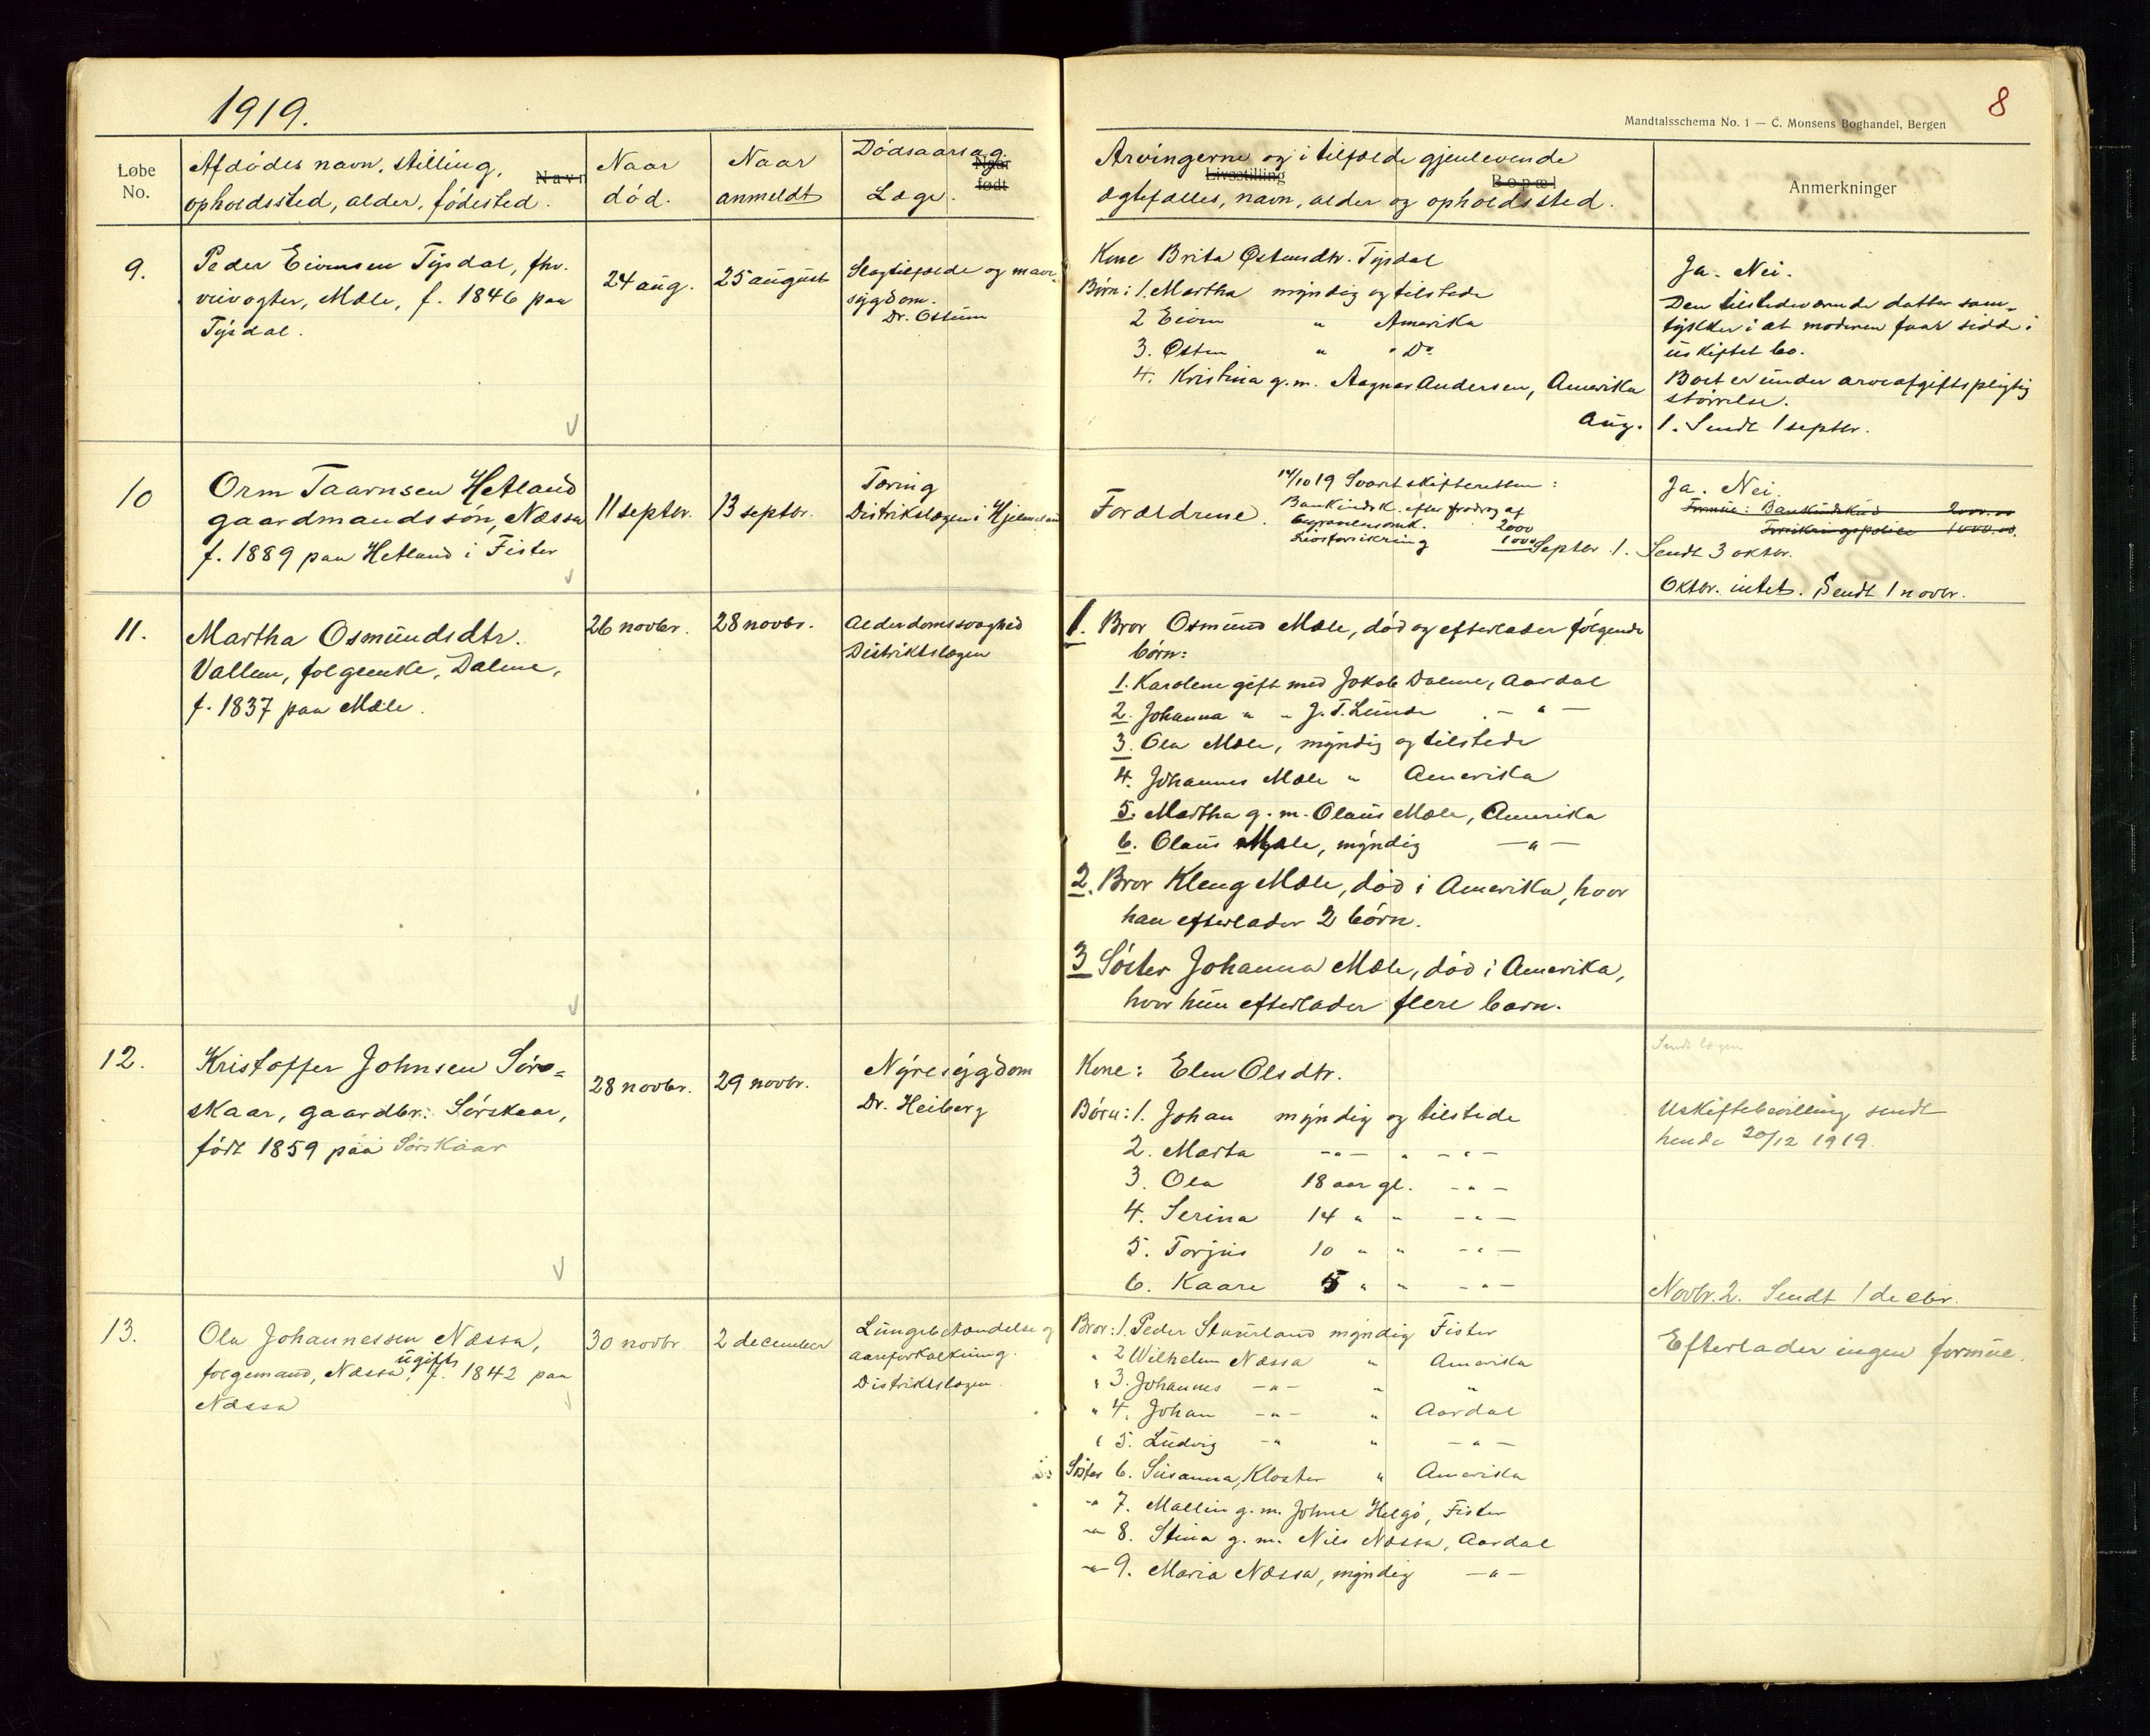 1919.
8
Mandtalsschema No. 1 — C. Monsens Boghandel, Bergen
Løbe No.
Afdødes navn, stilling,
opholdssted, alder, fødested.
Navn
Naar
død.
Naar
anmeldt
Dødsaarsag.
Læge.
Naar født
Arvingerne og i tilfælde gjenlevende
Livsstilling
Bopæl
ægtefælles, navn, alder og opholdssted.
Anmerkninger
9.
Peder Eivensen Tysdal, fhv.
veivogter, Mæle, f. 1846 paa
Tysdal.
24 aug.
25 august
Slagtilfælde og mave-
sygdom.
Dr. Ostum
Kone Brita Østensdtr. Tysdal
Børn: 1. Martha myndig og tilstede
2 Eiven " Amerika
3. Østen " " Do
4. Kristina g. m. Aagnar Andersen, Amerika
Aug.
Ja. Nei.
Den tilstedeværende datter sam-
tykker i at moderen faar sidde i
uskiftet bo.
Boet er under arveafgiftspligtig
størrelse.
1. Sendt 1 septbr.
10
Orm Taarnsen Hetland
gaardmandssøn, Næssa
f. 1889 paa Hetland i Fister
11 septbr.
13 septbr.
Tæring
Distriktslægen i Hjelmeland
Forældrene.
14/10 19 Svart skifteretten:
Bankindsk. efter fradrag af
begravelsesomk. 2000
Livsforsikring 1000
Septbr. 1.
Ja. Nei.
Formue: Bankindskud 2000.00
Forsikringspolice 1000.00.
Sendt 3 oktbr.
Oktbr. intet. Sendt 1 novbr.
11.
Martha Osmundsdtr.
Vallem, folgeenke, Dalene,
f. 1837 paa Mæle.
26 novbr.
28 novbr.
Alderdomssvaghed
Distriktslægen
1. Bror Osmund Mæle, død og efterlader følgende
børn:
1. Karolene gift med Jokob Dalene, Aardal
2. Johanna " " J. T. Lunde – " –
3. Ola Mæle, myndig og tilstede
4. Johannes Mæle " Amerika
5. Martha g. m. Olaus Mæle, Amerika
6. Olaus Mæle, myndig – " –
2. Bror Kleng Mæle, død i Amerika, hvor
han efterlader 2 børn.
3 Søster Johanna Mæle, død i Amerika,
hvor hun efterlader flere barn.
12.
Kristoffer Johnsen Sørs-
skaar, gaardbr. Sørskaar,
født 1859 paa Sørskaar
28 novbr.
29 novbr.
Nyresygdom
Dr. Heiberg
Kone: Elen Olsdtr.
Børn: 1. Johan myndig og tilstede
2. Marta – " – " – " –
3. Ola 18 aar gl. – " –
4. Serina 14 " " – " –
5. Torjus 10 " " – " –
6. Kaare 5 " " – " –
Sendt lægen
Uskiftebevilling sendt
hende 20/12 1919.
Novbr. 2. Sendt 1 decbr.
13.
Ola Johannessen Næssa,
ugift
folgemand, Næssa, f. 1842 paa
Næssa
30 novbr
2 december
Lungebetændelse og
aareforkalkning.
Distriktslægen.
Bror: 1. Peder Stuurland myndig Fister
" 2 Wilhelm Næssa " Amerika
" 3. Johannes – " – " "
" 4. Johan – " – " Aardal
" 5. Ludvig – " " – " –
Søster 6. Susanna, Kloster " Amerika
" 7. Mallin g. m. Johne Helgø, Fister
" 8. Stina g. m. Nils Næssa, Aardal
" 9. Maria Næssa, myndig – " –
Efterlader ingen formue.